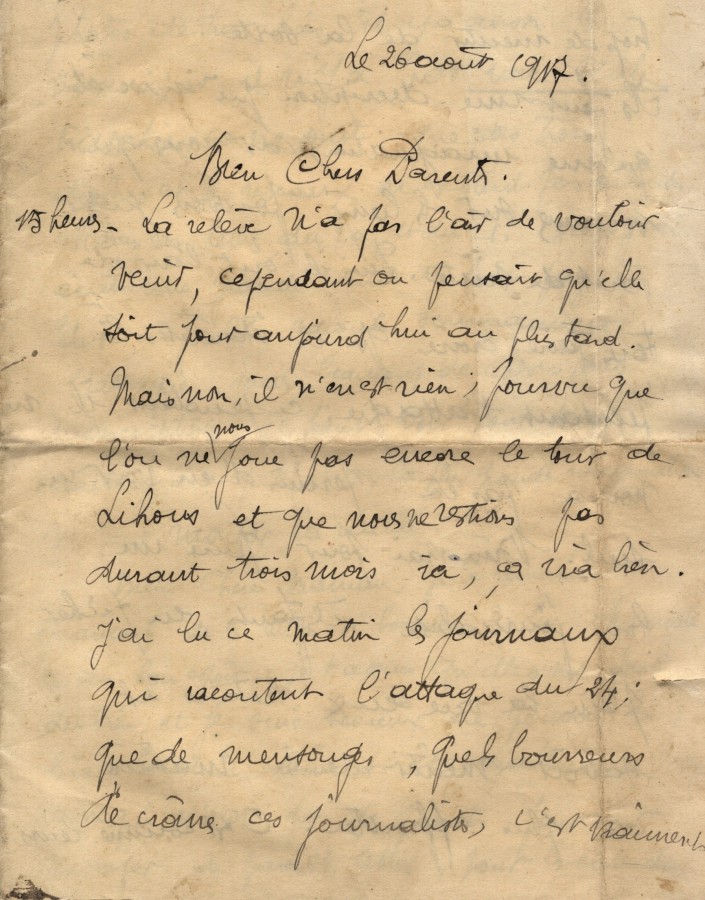 Le 26 août 1917.
Bien Chers Parents.
15 heures - La relève n'a pas l'air de vouloir
venir, cependant on pensait qu'elle
soit pour aujourd'hui au plus tard.
Mais non, il n'en est rien ; pourvu que
l'on ne nous joue pas encore le tour de
Lihons et que nous ne restions pas
durant trois mois ici, ça ira bien.
J'ai lu ce matin les journaux
qui racontent l'attaque du 24 ;
que de mensonges, quels bourreurs
de crâne ces journalistes, c'est vraiment